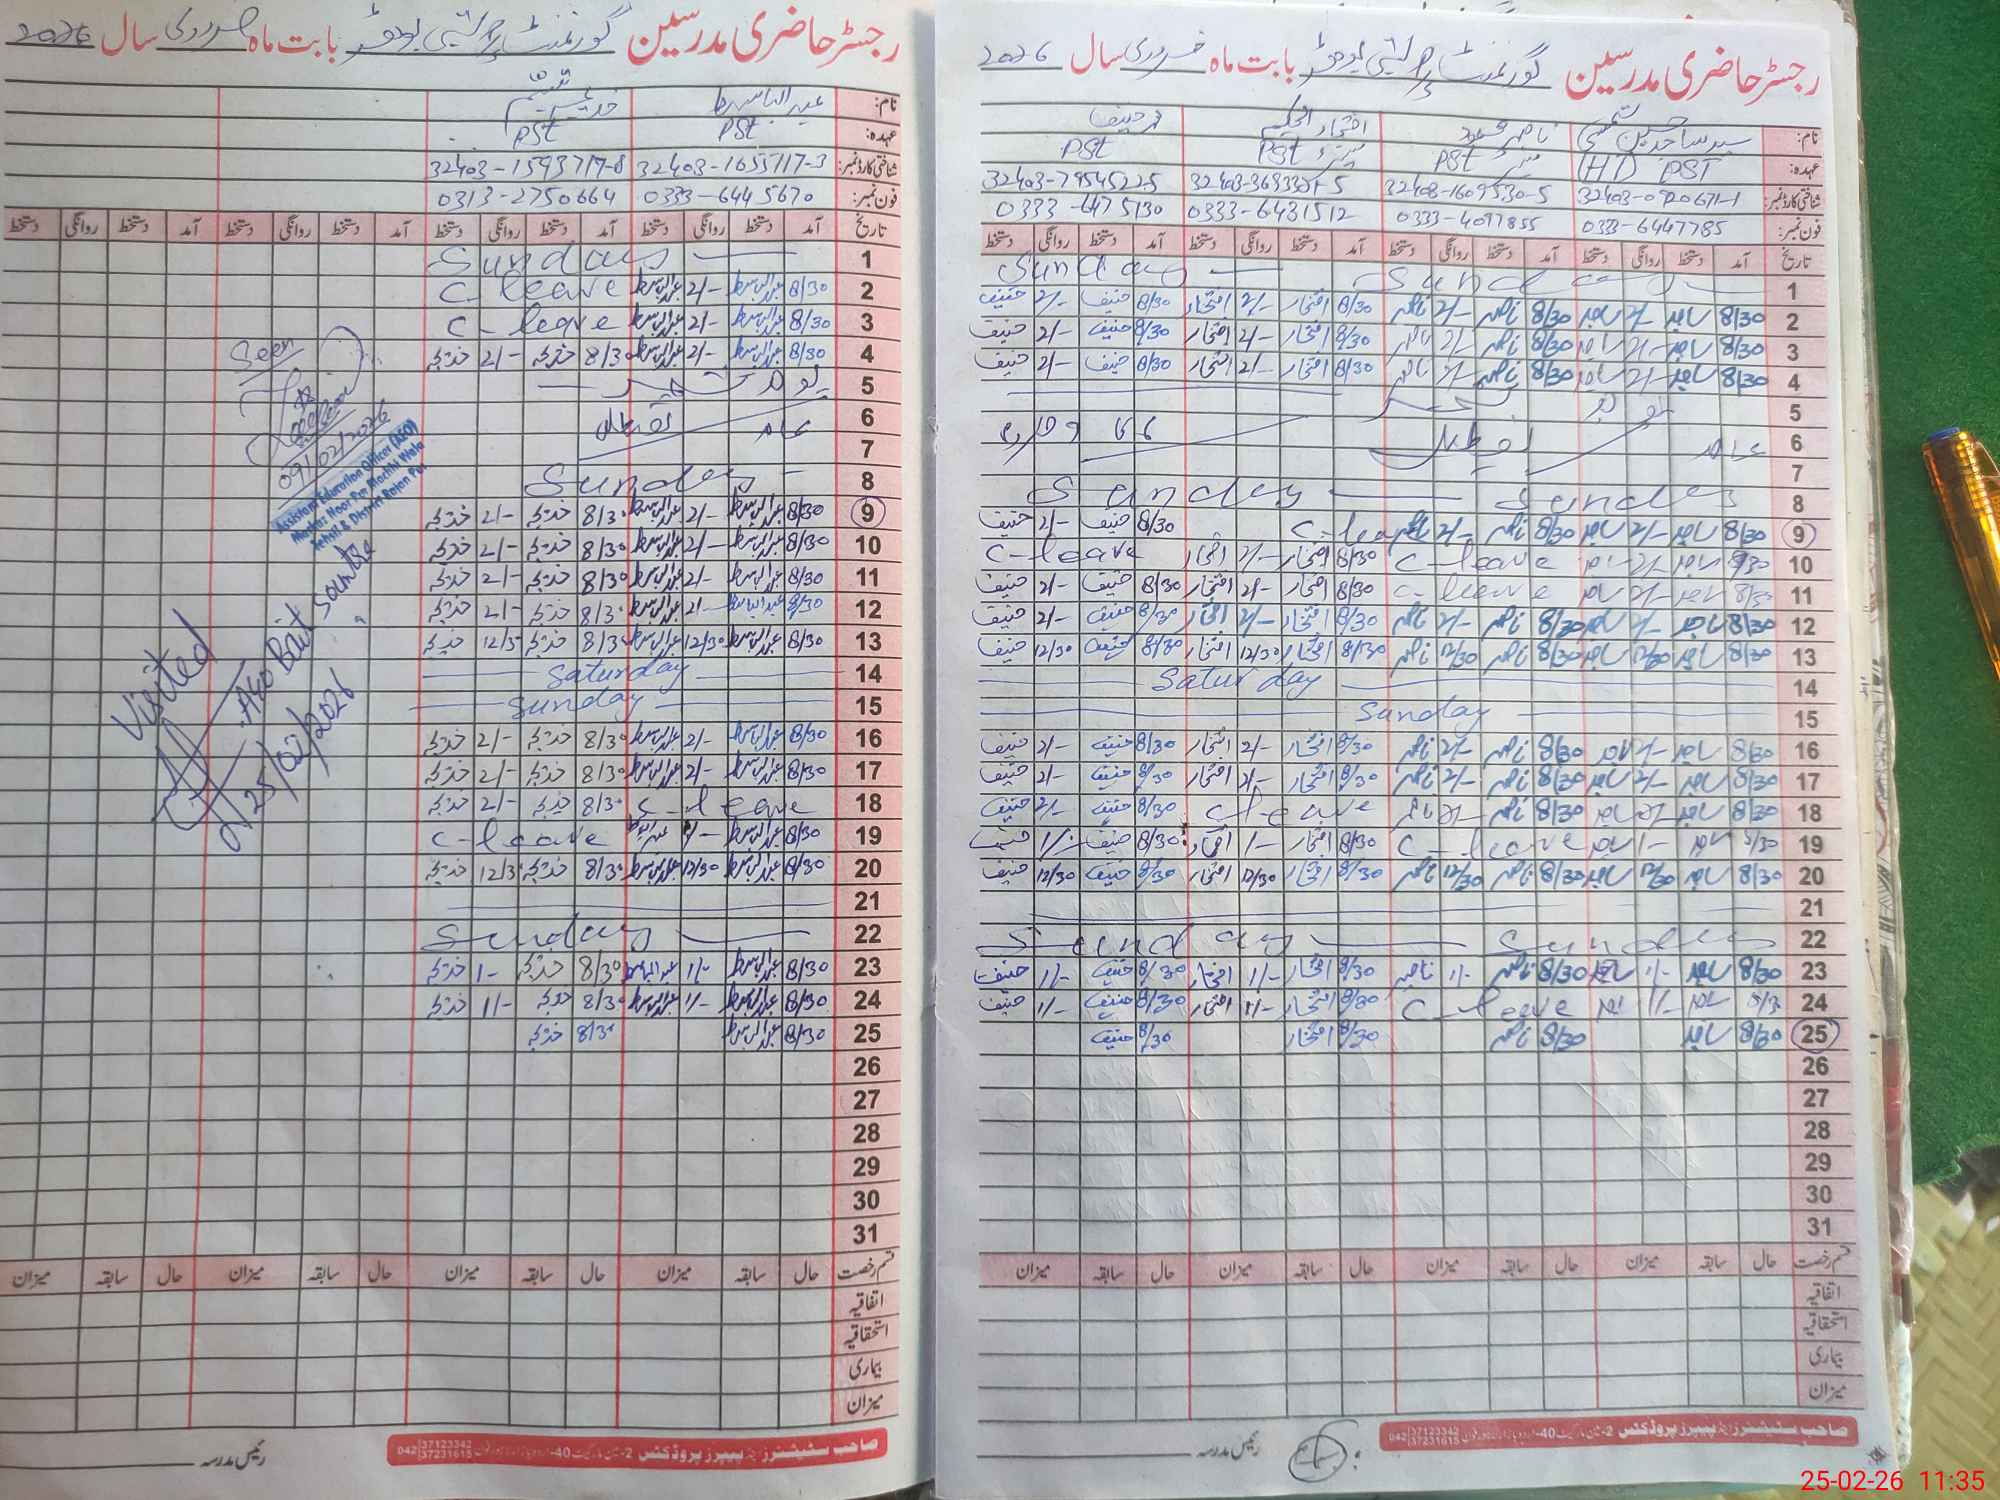 رجسٹر حاضری مدرسین گورنمنٹ بابت ماہ فروری سال 2026
نام: سید ساجد حسین شمسی ناصر محمود افتخار الحکیم محمد حنیف
عہدہ: PST (HT) PST PST PST
شناختی کارڈ نمبر: 32403-1609530-5
فون نمبر: 0333-6447785 0333-4097855 0333-6431512 0333-6475130
تاریخ آمد دستخط روانگی دستخط آمد دستخط روانگی دستخط آمد دستخط روانگی دستخط آمد دستخط روانگی دستخط
1 Sunday Sunday
2 8/30 ساجد 2/- ساجد 8/30 ناصر 2/- ناصر 8/30 افتخار 2/- افتخار 8/30 حنیف 2/- حنیف
3 8/30 ساجد 2/- ساجد 8/30 ناصر 2/- ناصر 8/30 افتخار 2/- افتخار 8/30 حنیف 2/- حنیف
4 8/30 ساجد 2/- ساجد 8/30 ناصر 2/- ناصر 8/30 افتخار 2/- افتخار 8/30 حنیف 2/- حنیف
5 یوم کشمیر
6 عام تعطیل
7
8 Sunday Sunday
9 8/30 ساجد 2/- ساجد 8/30 ناصر 2/- ناصر C-leave 8/30 حنیف 2/- حنیف
10 8/30 ساجد 2/- ساجد C-leave 8/30 افتخار 2/- افتخار C-leave
11 8/30 ساجد 2/- ساجد C-leave 8/30 افتخار 2/- افتخار 8/30 حنیف 2/- حنیف
12 8/30 ساجد 2/- ساجد 8/30 ناصر 2/- ناصر 8/30 افتخار 2/- افتخار 8/30 حنیف 2/- حنیف
13 8/30 ساجد 12/30 ساجد 8/30 ناصر 12/30 ناصر 8/30 افتخار 12/30 افتخار 8/30 حنیف 12/30 حنیف
14 Saturday
15 Sunday
16 8/30 ساجد 2/- ساجد 8/30 ناصر 2/- ناصر 8/30 افتخار 2/- افتخار 8/30 حنیف 2/- حنیف
17 8/30 ساجد 2/- ساجد 8/30 ناصر 2/- ناصر 8/30 افتخار 2/- افتخار 8/30 حنیف 2/- حنیف
18 8/30 ساجد 2/- ساجد 8/30 ناصر 2/- ناصر C leave 8/30 حنیف 2/- حنیف
19 8/30 ساجد 1/- ساجد C-leave 8/30 افتخار 1/- افتخار 8/30 حنیف 1/- حنیف
20 8/30 ساجد 12/30 ساجد 8/30 ناصر 12/30 ناصر 8/30 افتخار 12/30 افتخار 8/30 حنیف 12/30 حنیف
21
22 Sunday Sunday
23 8/30 ساجد 1/- ساجد 8/30 ناصر 1/- ناصر 8/30 افتخار 1/- افتخار 8/30 حنیف 1/- حنیف
24 ساجد 1/- ساجد C-leave 8/30 افتخار 1/- افتخار 8/30 حنیف 1/- حنیف
25 8/30 ساجد 8/30 ناصر 8/30 افتخار 8/30 حنیف
26
27
28
29
30
31
قسم رخصت حال سابقہ میزان حال سابقہ میزان حال سابقہ میزان حال سابقہ میزان
اتفاقیہ
استحقاقیہ
بیماری
میزان
صاحب سٹیشنرز اینڈ پیپرز پروڈکٹس
042 37123342
37231615
رئیس مدرسہ
رجسٹر حاضری مدرسین گورنمنٹ بابت ماہ فروری سال 2026
نام: عبدالباسط خدیجہ
عہدہ: PST PST
شناختی کارڈ نمبر: 32403-1655717-3 32403-1593717-8
فون نمبر: 0333-6445670 0313-2750664
تاریخ آمد دستخط روانگی دستخط آمد دستخط روانگی دستخط آمد دستخط روانگی دستخط آمد دستخط روانگی دستخط
1 Sunday
2 8/30 عبدالباسط 2/- عبدالباسط C-leave
3 8/30 عبدالباسط 2/- عبدالباسط C-leave
4 8/30 عبدالباسط 2/- عبدالباسط 8/30 خدیجہ 2/- خدیجہ
5 یوم کشمیر
6 عام تعطیل
7
8 Sunday
9 8/30 عبدالباسط 2/- عبدالباسط 8/30 خدیجہ 2/- خدیجہ
10 8/30 عبدالباسط 2/- عبدالباسط 8/30 خدیجہ 2/- خدیجہ
11 8/30 عبدالباسط 2/- عبدالباسط 8/30 خدیجہ 2/- خدیجہ
12 8/30 عبدالباسط 2/- عبدالباسط 8/30 خدیجہ 2/- خدیجہ
13 8/30 عبدالباسط 12/30 عبدالباسط 8/30 خدیجہ 12/30 خدیجہ
14 Saturday
15 Sunday
16 8/30 عبدالباسط 2/- عبدالباسط 8/30 خدیجہ 2/- خدیجہ
17 8/30 عبدالباسط 2/- عبدالباسط 8/30 خدیجہ 2/- خدیجہ
18 C-leave 8/30 خدیجہ 2/- خدیجہ
19 8/30 عبدالباسط 1/- عبدالباسط C-leave
20 8/30 عبدالباسط 12/30 عبدالباسط 8/30 خدیجہ 12/30 خدیجہ
21
22 Sunday
23 8/30 عبدالباسط 1/- عبدالباسط 8/30 خدیجہ 1/- خدیجہ
24 8/30 عبدالباسط 1/- عبدالباسط 8/30 خدیجہ 1/- خدیجہ
25 8/30 عبدالباسط 8/30 خدیجہ
26
27
28
29
30
31
قسم رخصت حال سابقہ میزان حال سابقہ میزان حال سابقہ میزان حال سابقہ میزان
اتفاقیہ
استحقاقیہ
بیماری
میزان
صاحب سٹیشنرز اینڈ پیپرز پروڈکٹس
042 37123342
37231615
رئیس مدرسہ
Seen
09/02/2026
Assistant Education Officer (AEO)
Markaz Noor Pur Machhi Wala
Tehsil & District Rajan Pur
Visited
AEO Bait Sountra
25/02/2026
25-02-26 11:35